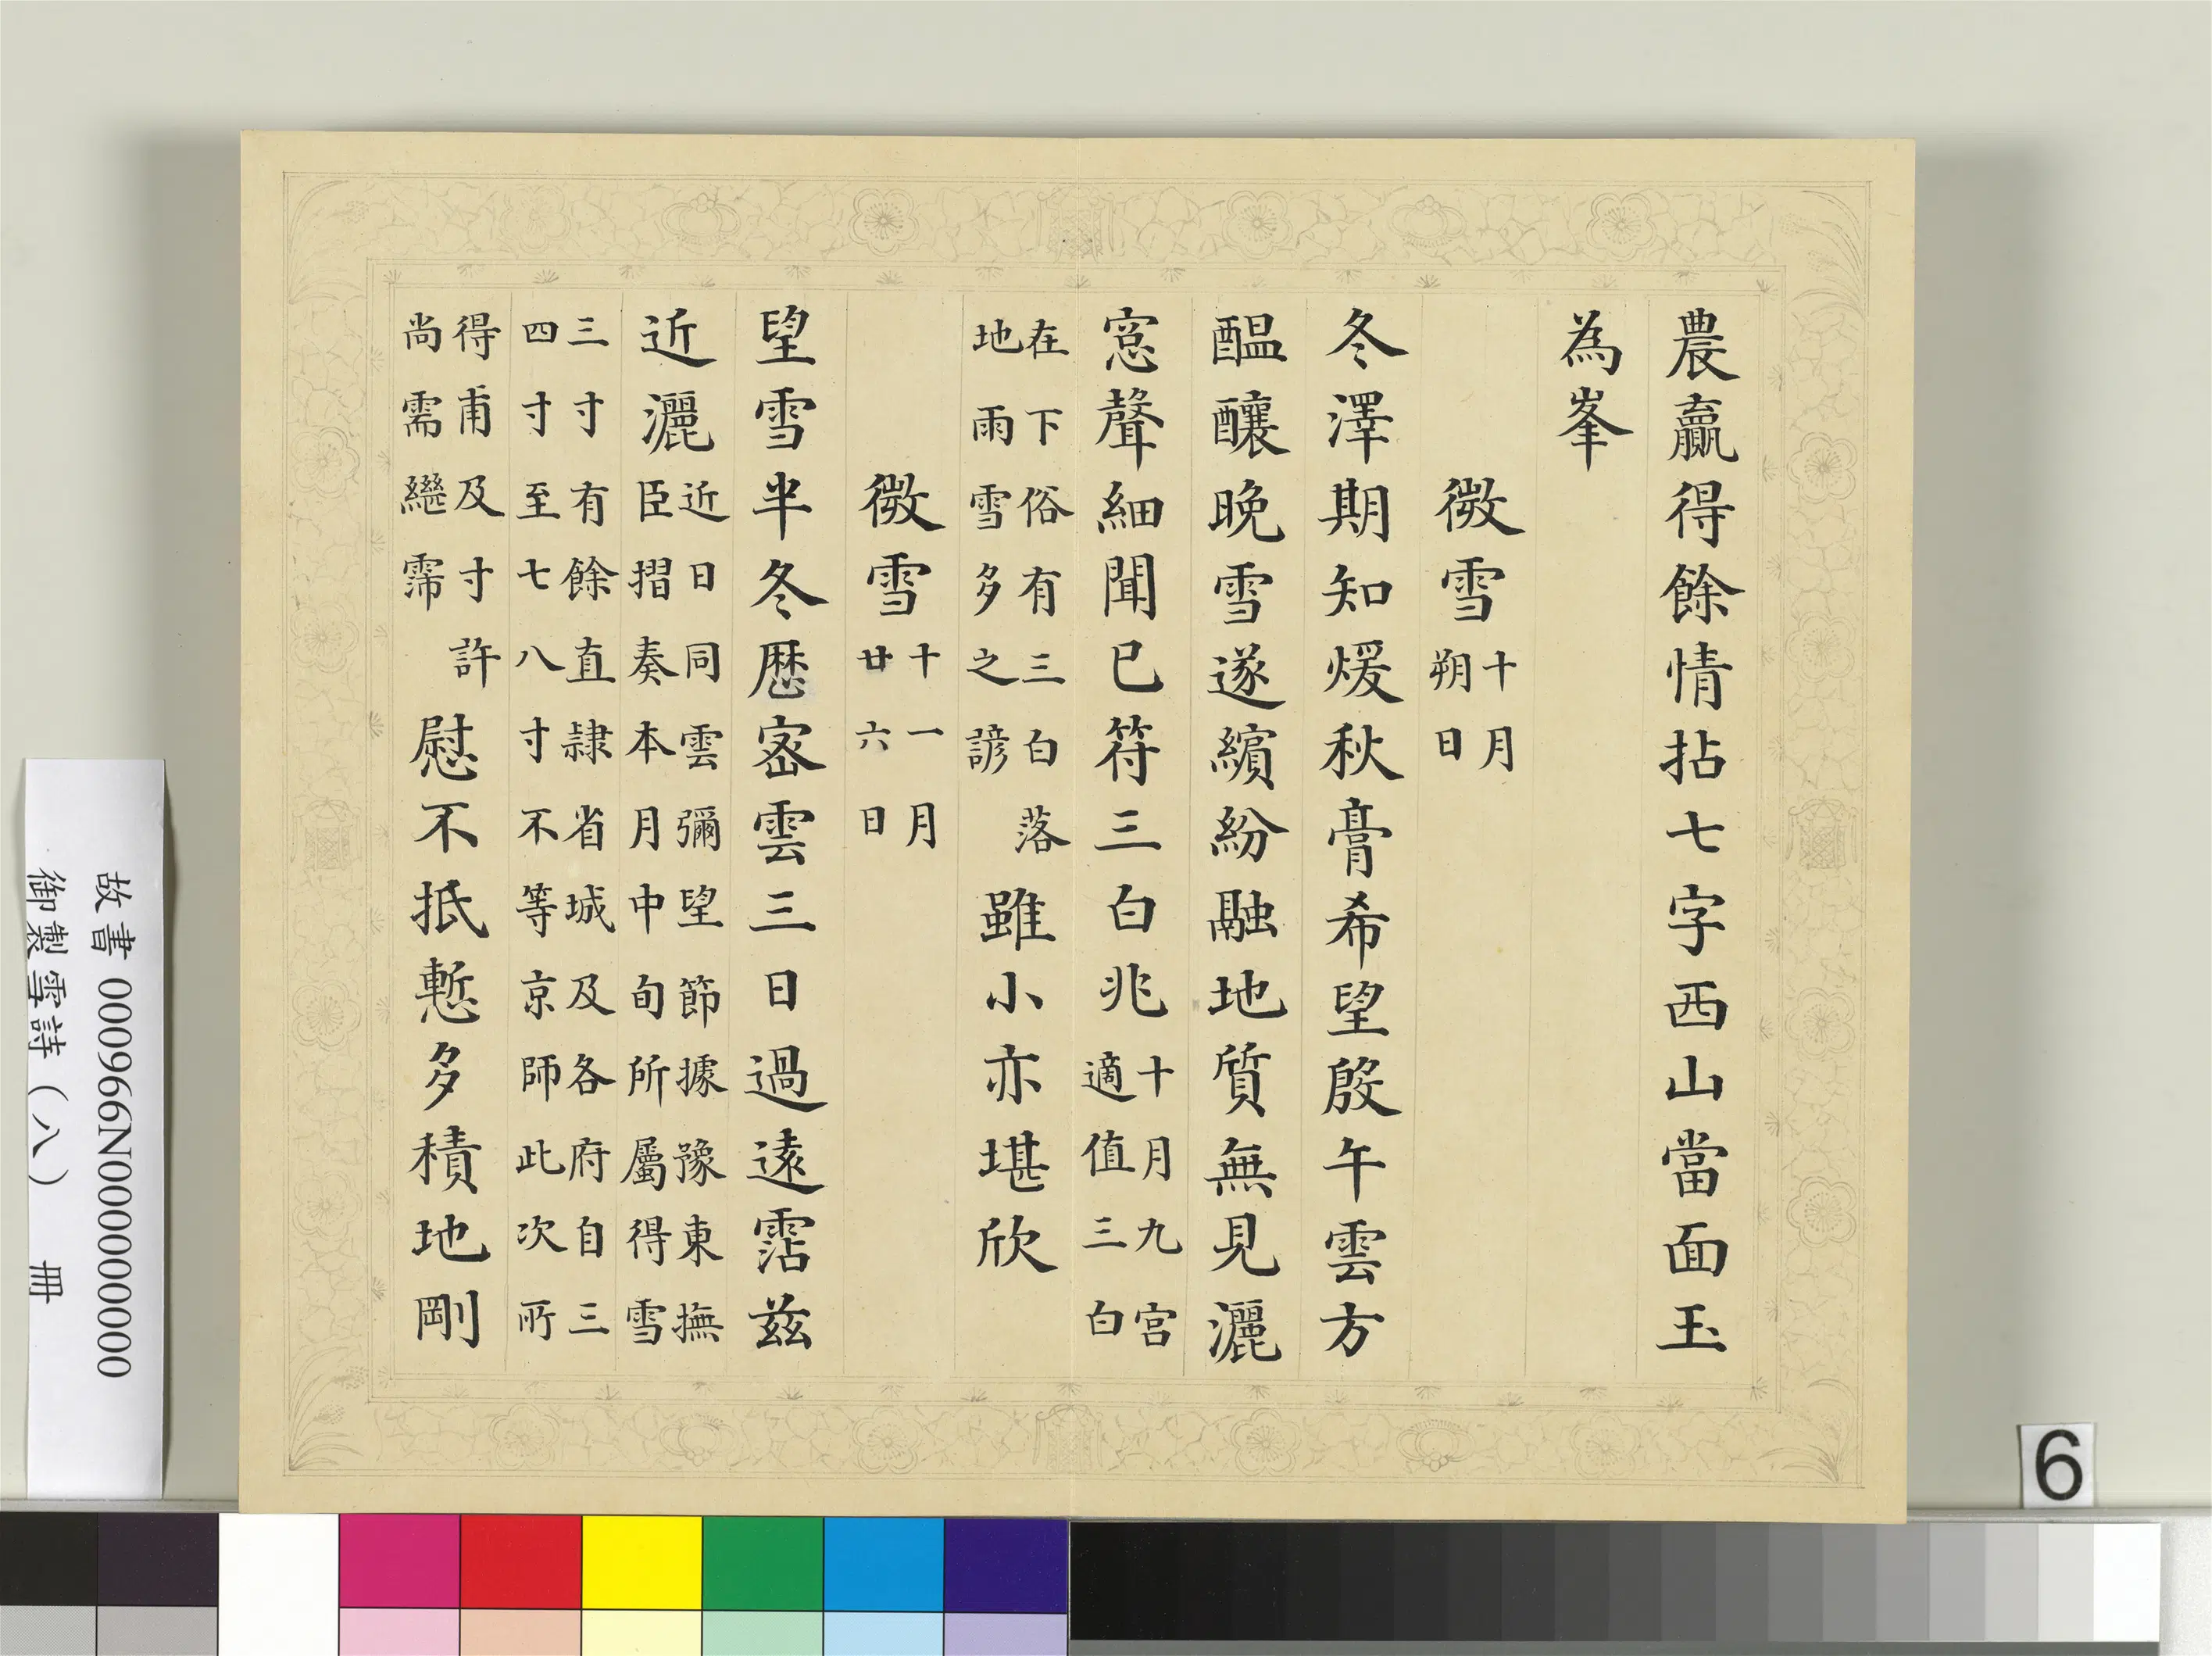 農贏得餘情拈七字西山當面玉
為峯
微雪十月朔日
冬澤期知煖秋膏希望殷午雲方
醖釀晚雪遂繽紛融地質無見灑
窓聲細聞已符三白兆十月九宮適值三白
在下俗有三白落地雨雪多之諺雖小亦堪欣
微雪十一月廿六日
望雪半冬厯宻雲三日過遠霑茲
近灑近日同雲彌望節據豫東撫臣摺奏本月中旬所屬得雪
三寸有餘直隷省城及各府自三四寸至七八寸不等京師此次所
得甫及寸許尚需繼霈慰不抵慙多積地剛
故書 000966N000000000
御製雪詩（八） 冊
6